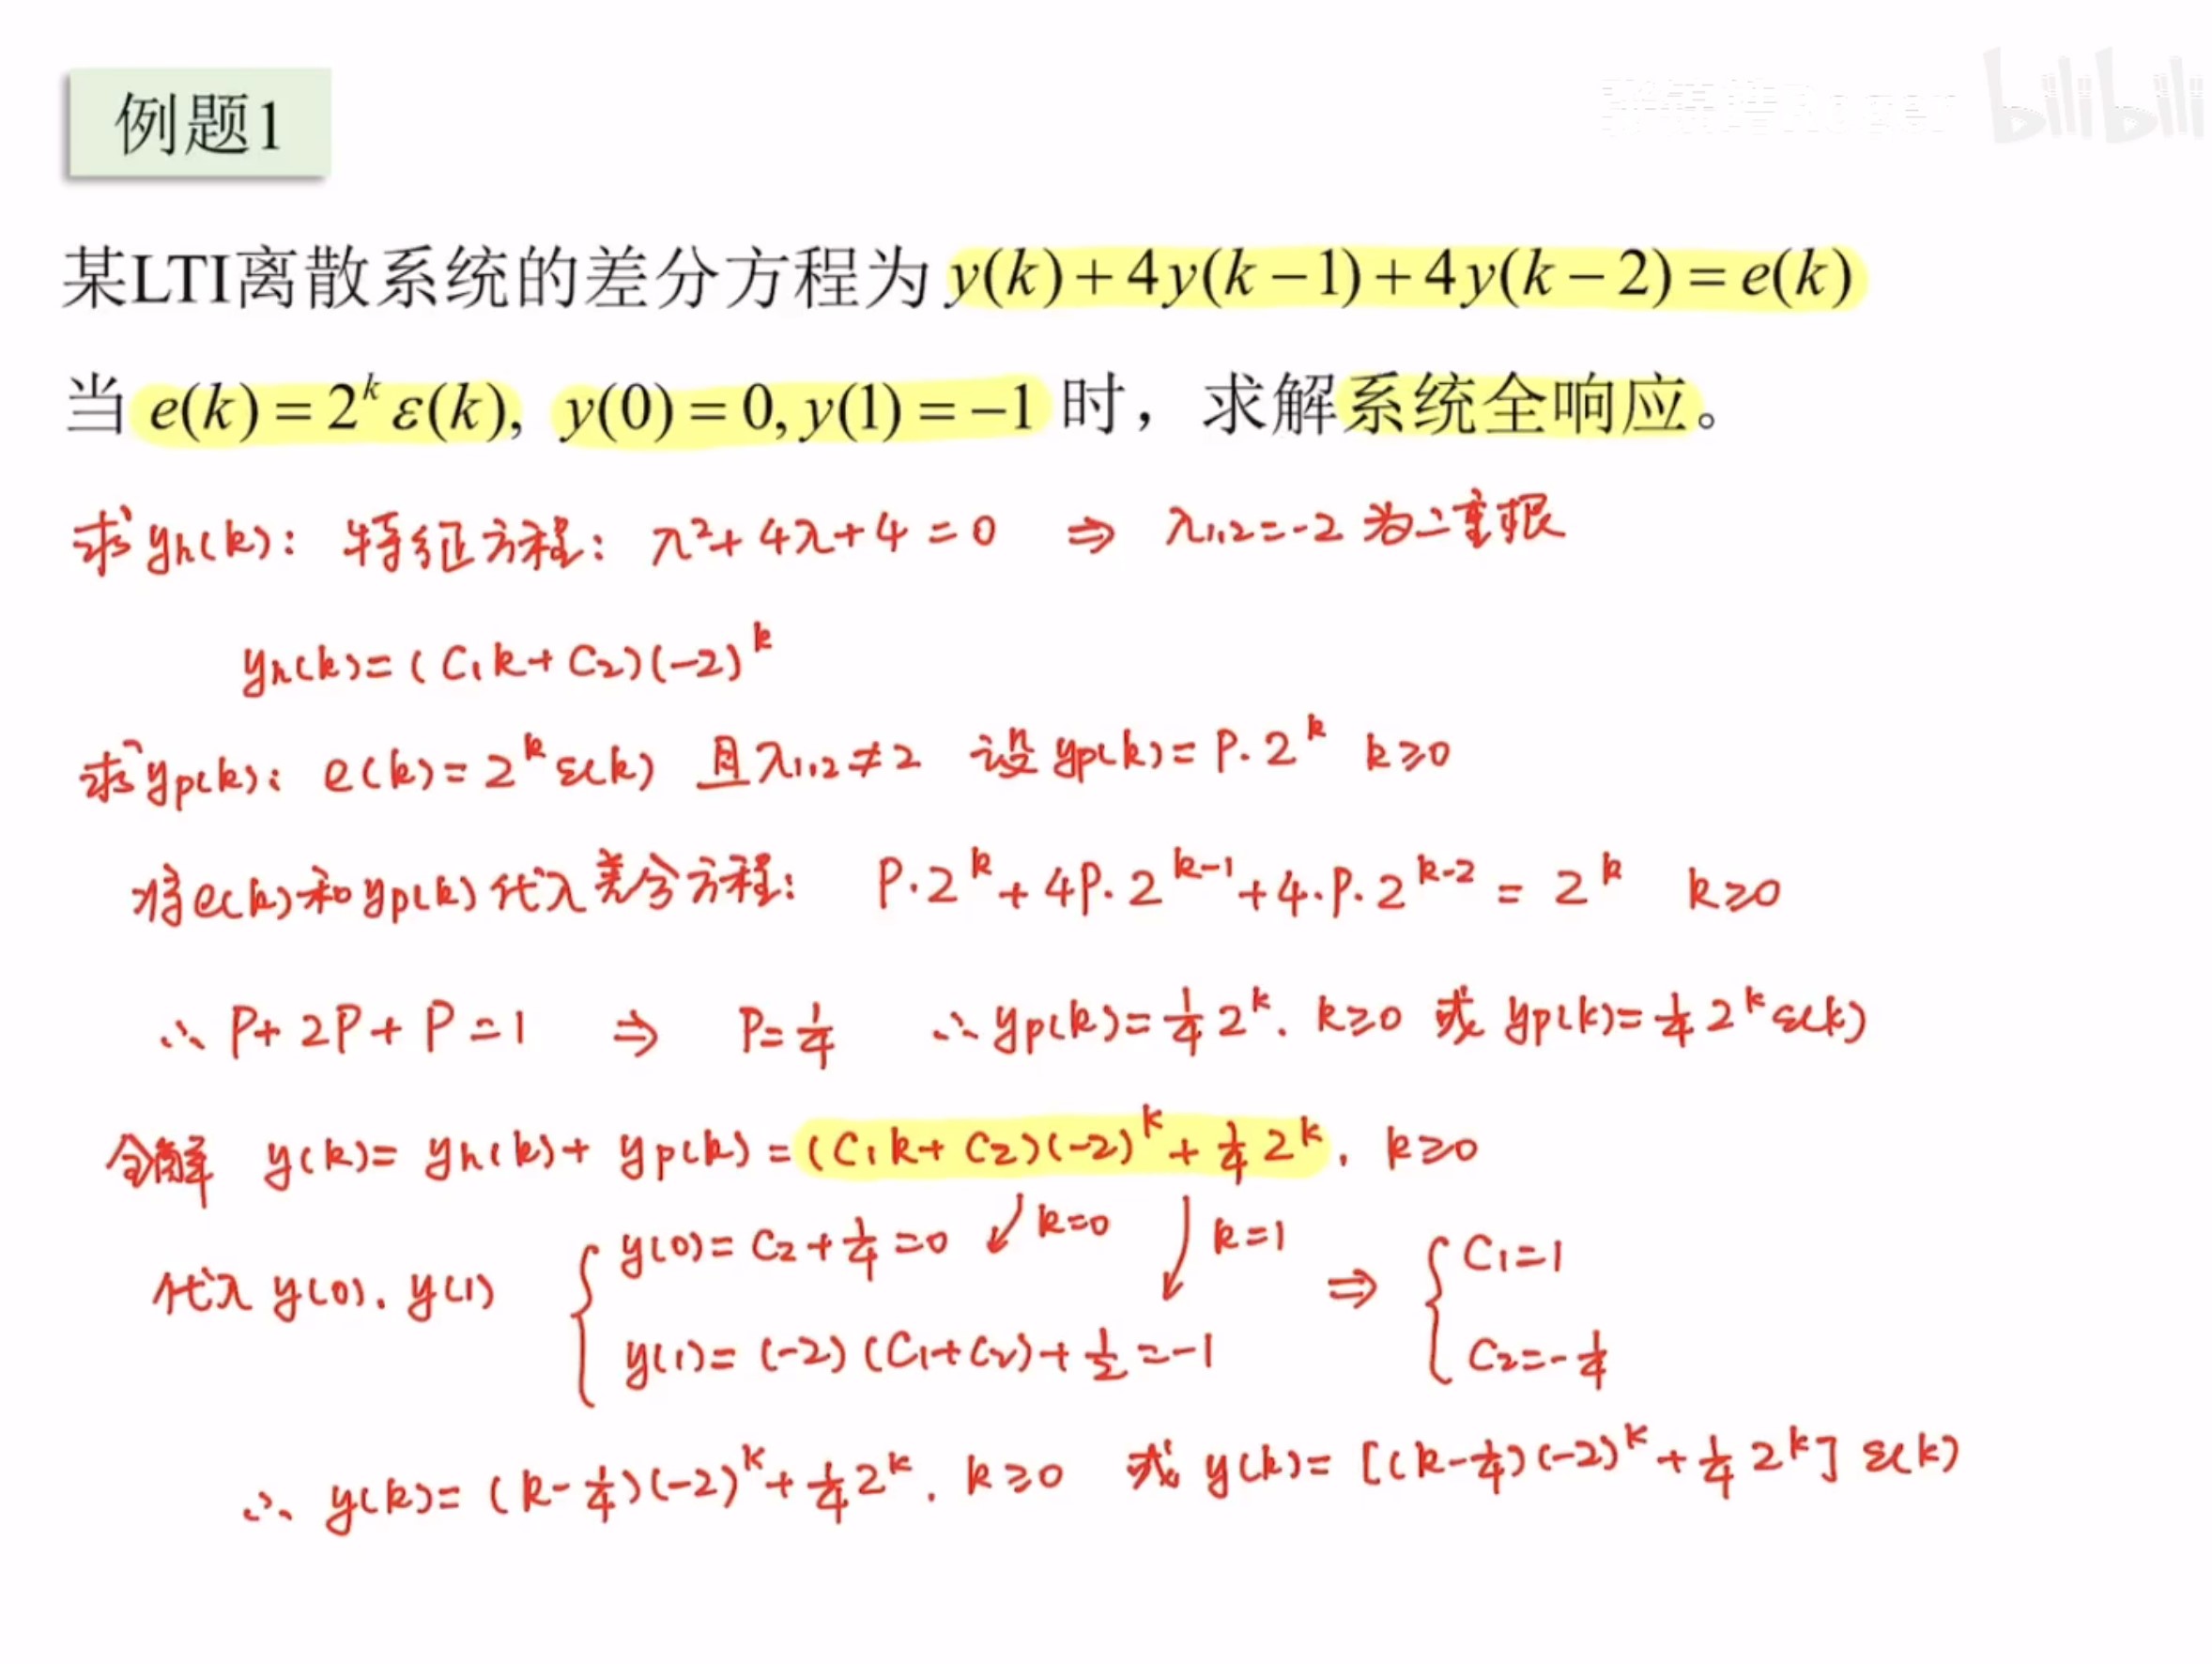 bilibili
例题1
某LTI离散系统的差分方程为 y(k)+4y(k−1)+4y(k−2)=e(k)
当 e(k)=2^k ε(k), y(0)=0, y(1)=−1 时，求解系统全响应。
求 yh(k): 特征方程: λ²+4λ+4=0 ⇒ λ1,2=-2 为二重根
yh(k)=(C1k+C2)(-2)^k
求 yp(k): e(k)=2^k ε(k) 且 λ1,2≠2 设 yp(k)=P·2^k k≥0
将e(k)和yp(k)代入差分方程: P·2^k+4P·2^(k-1)+4·P·2^(k-2)=2^k k≥0
∴ P+2P+P=1 ⇒ P=1/4 ∴ yp(k)=1/4 2^k, k≥0 或 yp(k)=1/4 2^k ε(k)
全解 y(k)=yh(k)+yp(k)=(C1k+C2)(-2)^k+1/4 2^k, k≥0
y(0)=C2+1/4=0 ↙k=0 ↓k=1 C1=1
代入 y(0), y(1) { ⇒ {
y(1)=(-2)(C1+C2)+1/2=-1 C2=-1/4
∴ y(k)=(k-1/4)(-2)^k+1/4 2^k, k≥0 或 y(k)=[(k-1/4)(-2)^k+1/4 2^k] ε(k)